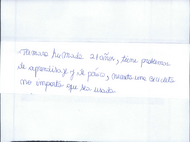 Tamara Hurtado 21 años, tiene problemas
de aprendizaje y de pánico, necesita una bicicleta
no importa que sea usada